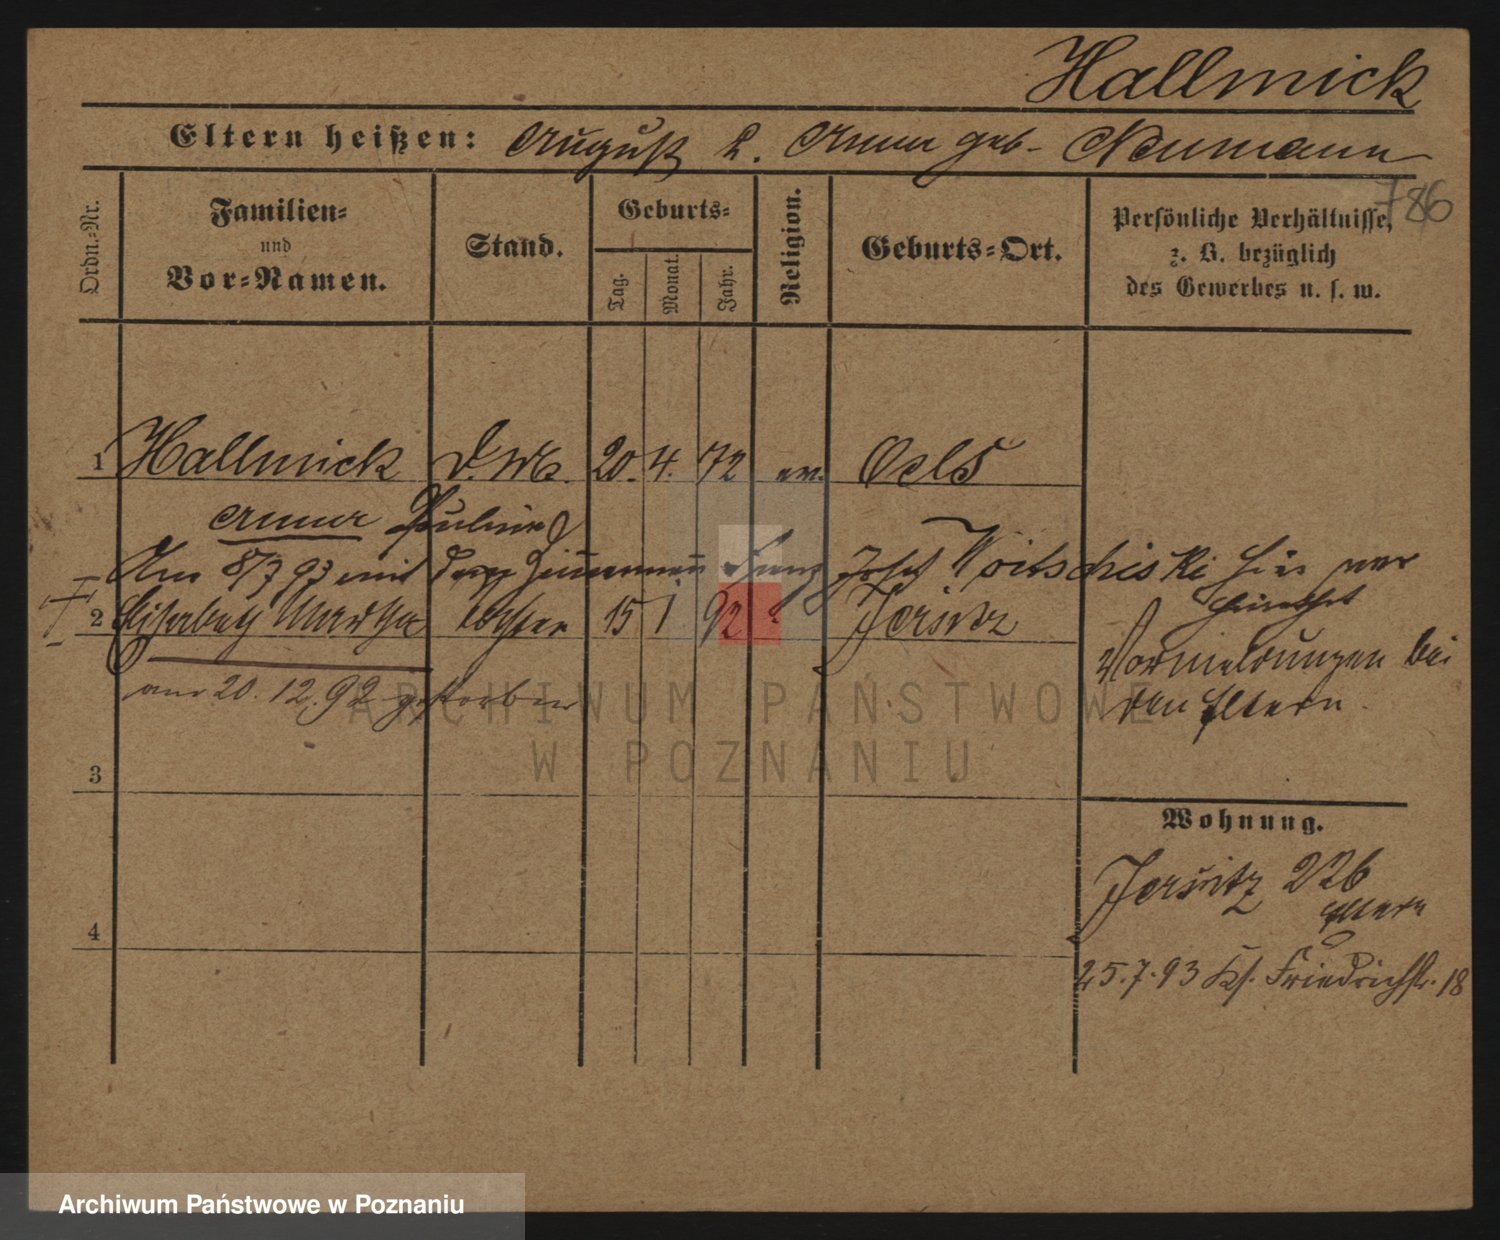 Hallmick
Eltern heißen: August & Anna geb. Neumann
786
Ordn.-Nr.
Familien- und Vor-Namen.
Stand.
Geburts-
Tag. Monat. Jahr.
Religion.
Geburts-Ort.
Persönliche Verhältnisse, z. B. bezüglich des Gewerbes u. s. w.
1 Hallmick 20. 4. 72 ev. Oels
Anna Pauline
Am 8/7 93 mit dem Zimmermann Franz Josef Woitschiski hier ver
heirathet
2 Elisabeth Martha Tochter 15 1 92 Jersitz
am 20. 12. 92 gestorben
Vormeldungen bei
den Eltern.
3
4
Wohnung.
Jersitz 226
Eltern
25.7.93 Friedrichstr. 18
ARCHIWUM PAŃSTWOWE
W POZNANIU
Archiwum Państwowe w Poznaniu